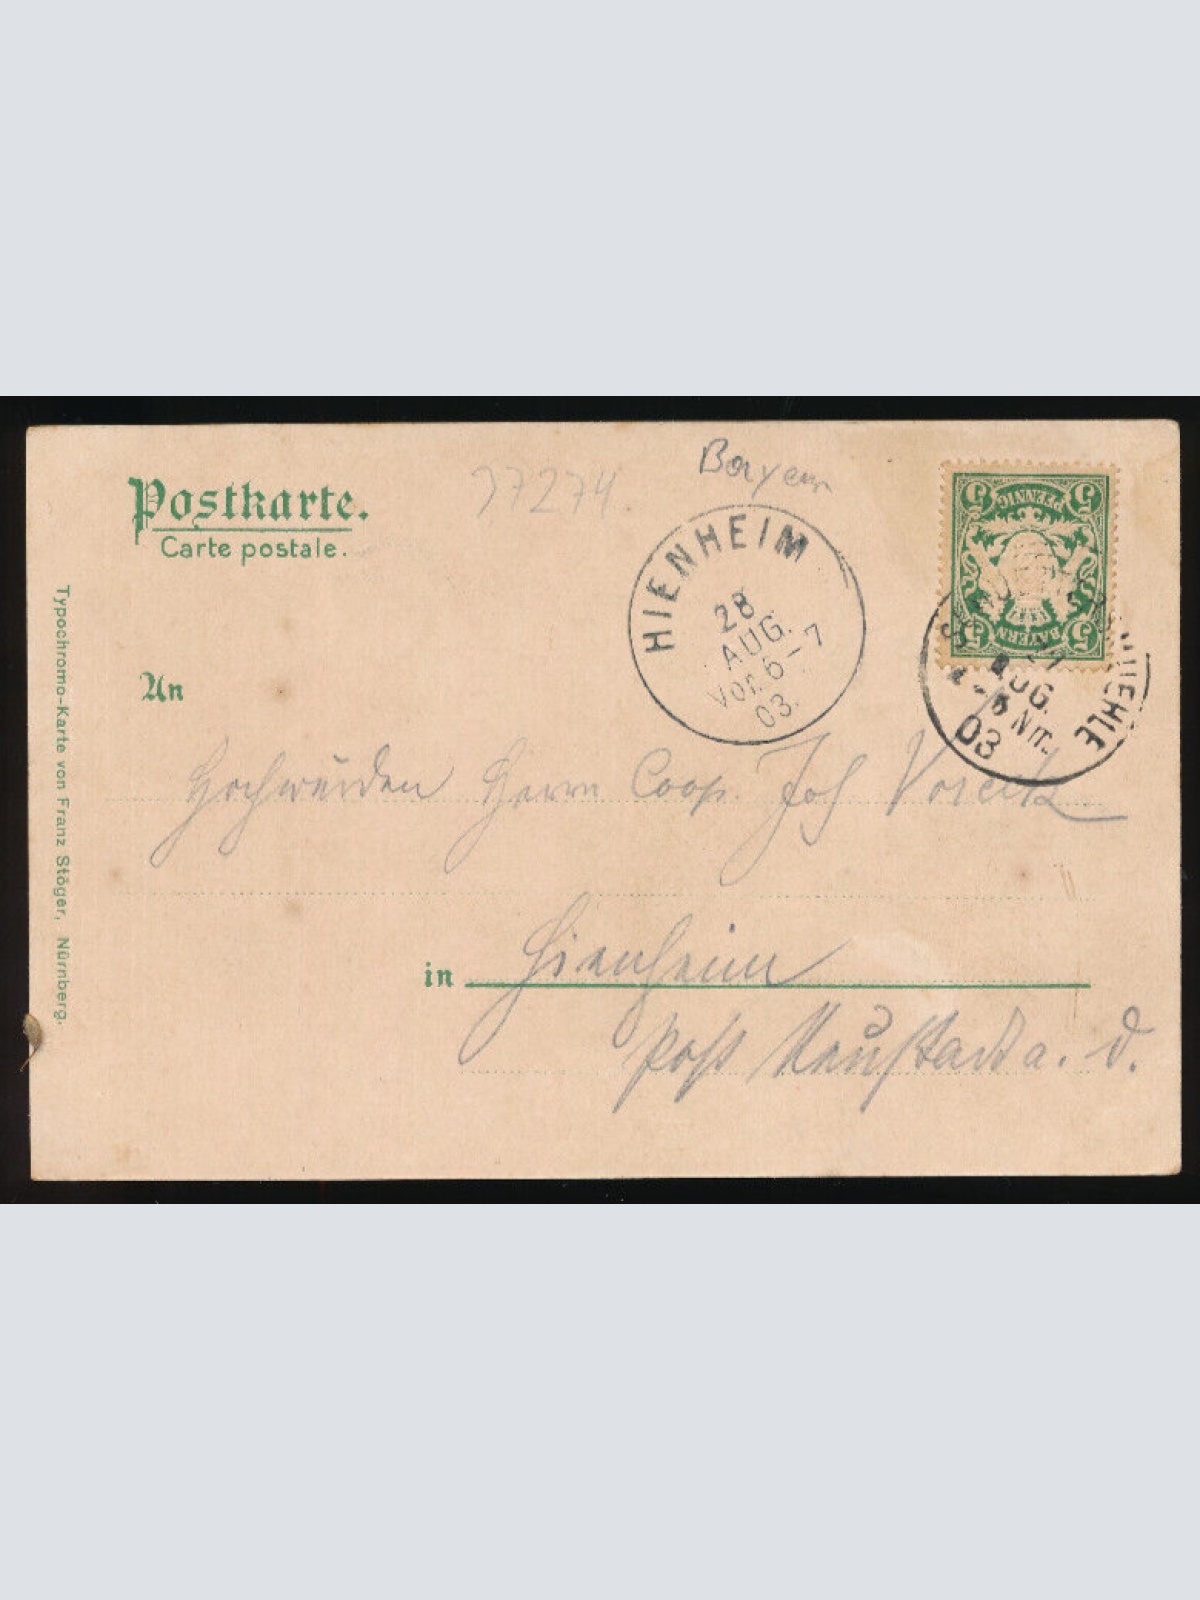 Bayern
37274
Postkarte.
Carte postale.
5 PFENNIG 5
5 BAYERN 5
HIENHEIM
28
AUG.
Vor. 6-7
03.
AUG.
NM.
03
An
Hochwürden Herrn Coop. Joh
in Hienheim
Post Neustadt a. D.
Typochromo-Karte von Franz Stöger, Nürnberg.